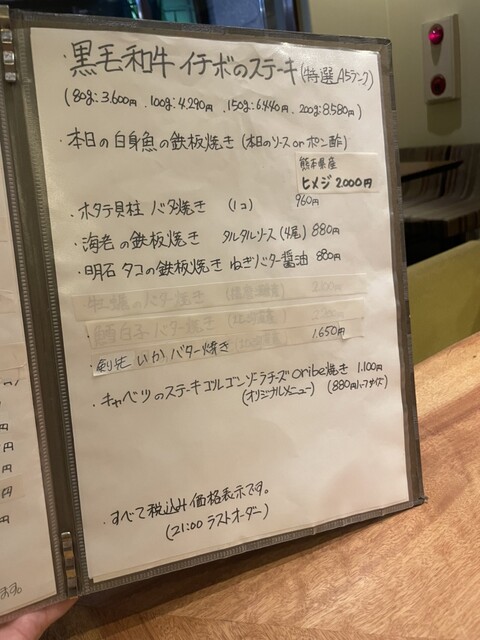 ・黒毛和牛 イチボのステーキ(特選A5ランク)
(80g:3.600円.100g:4.290円.150g:6.440円.200g:8.580円)
・本日の白身魚の鉄板焼き (本日のソース or ポン酢)
熊本県産
ヒメジ 2.000円
・ホタテ貝柱 バタ焼き (1コ) 960円
・海老の鉄板焼き タルタルソース(4尾) 880円
・明石タコの鉄板焼き ねぎバター醤油 880円
牡蠣のバター焼き
・鱈白子バター焼き
剣先いかバター焼き 1.650円
・キャベツのステーキゴルゴンゾーラチーズoribe焼き 1.100円
(オリジナルメニュー) (880円ハーフサイズ)
・すべて税込み価格表示です。
(21:00 ラストオーダー)
円
円
円
円
円
ます。